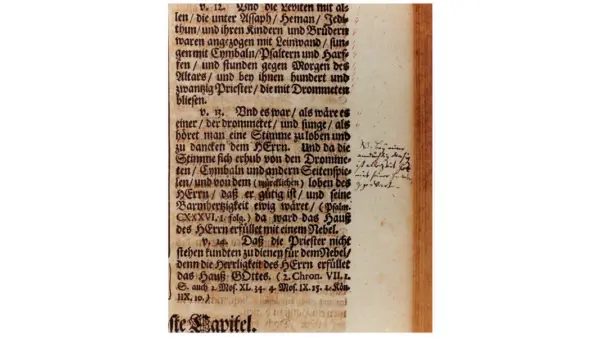 v. 12. Und die Leviten mit al-
len / die unter Assaph / Heman / Jedi-
thun / und ihren Kindern und Brüdern
waren angezogen mit Leinwand / sun-
gen mit Cymbaln / Psaltern und Harf-
fen / und stunden gegen Morgen des
Altars / und bey ihnen hundert und
zwantzig Priester / die mit Drommeten
bliesen.
v. 13. Und es war / als wäre es
einer / der drommetet / und sunge / als
höret man eine Stimme zu loben und
zu dancken dem HErrn. Und da die
Stimme sich erhub von den Dromme-
ten / Cymbaln und andern Seitenspie-
len / und von dem (würcklichen) loben des
HErrn / daß er gütig ist / und seine
Barmhertzigkeit ewig wäret / (Psalm.
CXXXVI. 1. folg.) da ward das Hauß
des HErrn erfüllet mit einem Nebel.
v. 14. Daß die Priester nicht
stehen kundten zu dienen für dem Nebel /
denn die Herrligkeit des HErrn erfüllet
das Hauß GOttes. (2. Chron. VII. 1.
S. auch 2. Mos. XL. 34. 4. Mos. IX. 15. 1. Kön.
IIX. 10.)
NB. Bey einer
andächtig
mit seiner
ste Capitel.